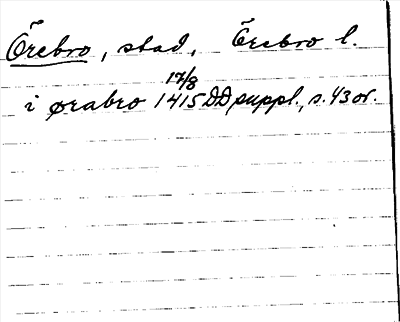 Örebro, stad, Örebro l.
17/8
i ørabro 1415 DD suppl., s. 43 or.